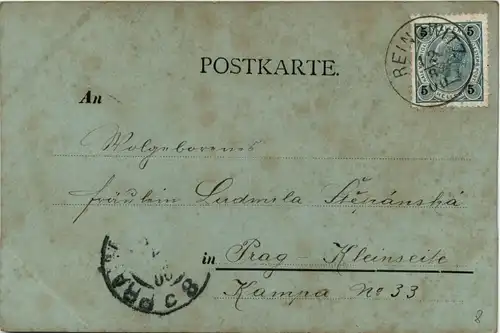 POSTKARTE.
An
Wolgeborenes
fräulein Ludmila Štěpánská
in Prag - Kleinseite
Kampa No 33
5 5
5 5
8